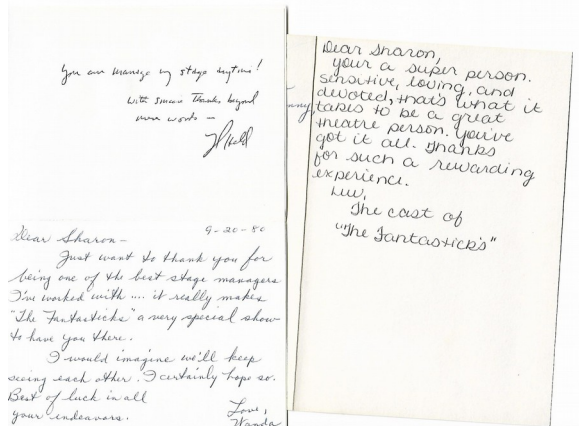 You can manage my stage anytime!
with sincere Thanks beyond
mere words —
Dear Sharon — 9-20-80
Just want to thank you for
being one of the best stage managers
I've worked with .... it really makes
"The Fantasticks" a very special show
to have you there.
I would imagine we'll keep
seeing each other. I certainly hope so.
Best of luck in all
your endeavors.
Love,
Wanda
Dear Sharon,
your a super person.
sensitive, loving, and
devoted, that's what it
takes to be a great
theatre person. You've
got it all. Thanks
for such a rewarding
experience.
Luv,
The cast of
"The Fantastick's"